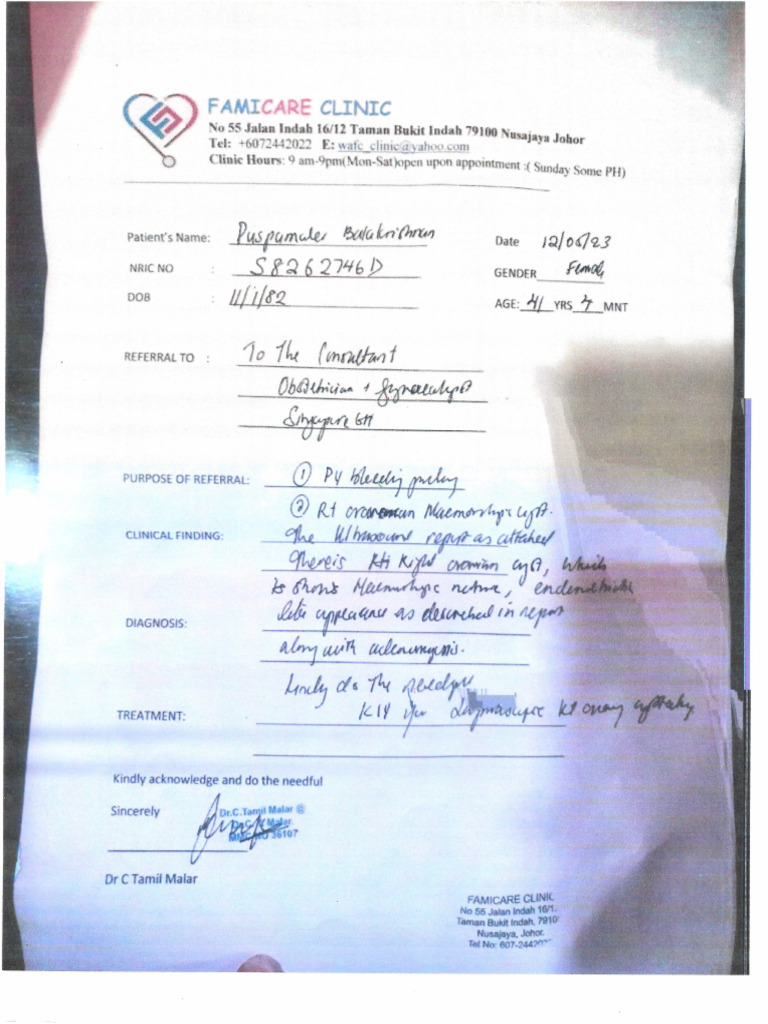 FAMICARE CLINIC
No 55 Jalan Indah 16/12 Taman Bukit Indah 79100 Nusajaya Johor
Tel: +6072442022 E: wafc_clinic@yahoo.com
Clinic Hours: 9 am-9pm(Mon-Sat)open upon appointment :( Sunday Some PH)
Patient's Name: Puspamaler Balakrishnan
Date 12/06/23
NRIC NO : S8262746D
GENDER Female
DOB : 11/1/82
AGE: 41 YRS MNT
REFERRAL TO : To The Consultant
Obstetrician + Gynaecologist
Singapore GH
PURPOSE OF REFERRAL: ① PV bleeding
② Rt ovarian Haemorrhagic cyst.
CLINICAL FINDING: The Ultrasound report as attached
There is Right ovarian cyst, which
is shows Haemorrhagic nature,
DIAGNOSIS: like appearance as described in report
along with adenomyosis.
Kindly do the
TREATMENT: Rt ovary
Kindly acknowledge and do the needful
Sincerely
Dr.C.Tamil Malar @
Malar.
MMC NO 36107
Dr C Tamil Malar
FAMICARE CLINIC
No 55 Jalan Indah 16/1
Taman Bukit Indah, 7910
Nusajaya, Johor.
Tel No: 607-24420